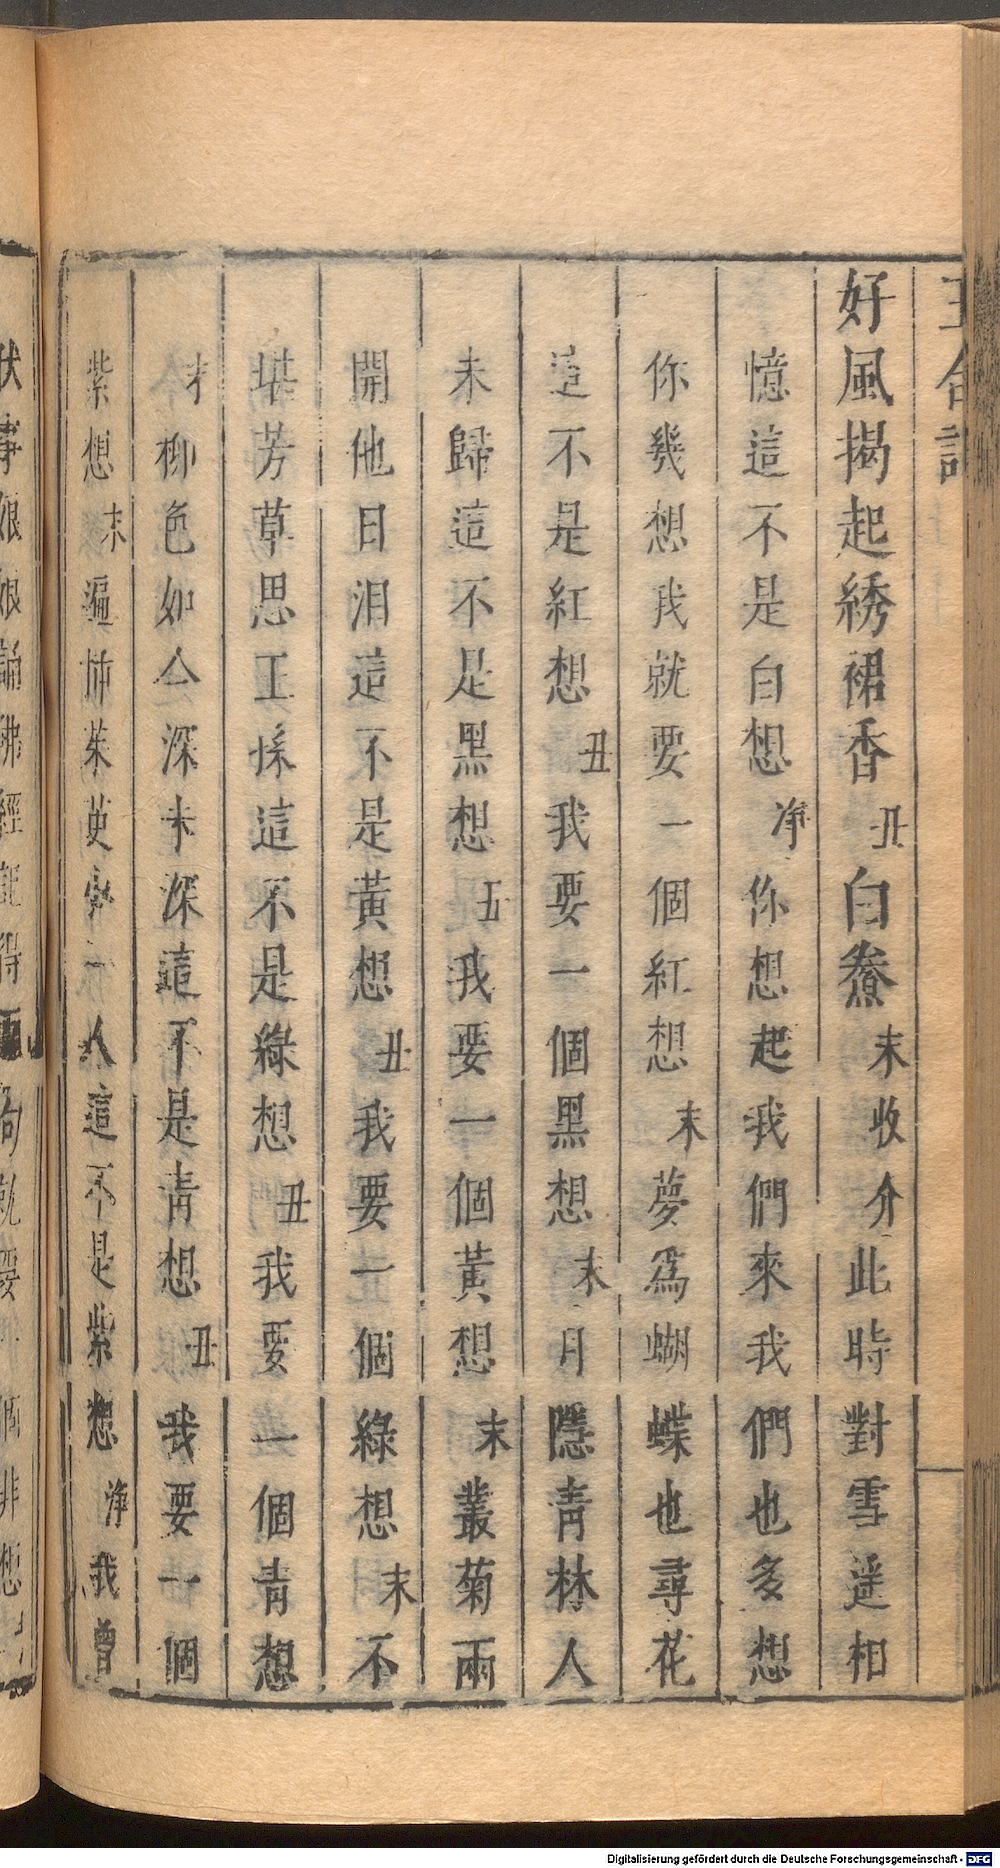 玉合記
好風揭起綉裙香丑白鯗末收介此時對雪遥相
憶這不是白想净你想起我們來我們也多想
你幾想我就要一個紅想末夢爲蝴蝶也尋花
這不是紅想丑我要一個黑想末月隱青林人
未歸這不是黑想丑我要一個黃想末叢菊兩
開他日淚這不是黃想丑我要一個綠想末不
堪芳草思王孫這不是綠想丑我要一個青想
末柳色如今深未深這不是青想丑我要一個
紫想末遍揷茱萸少一人這不是紫想净我曾
伏事娘娘誦佛經記得
句就要
個非想
Digitalisierung gefördert durch die Deutsche Forschungsgemeinschaft - DFG